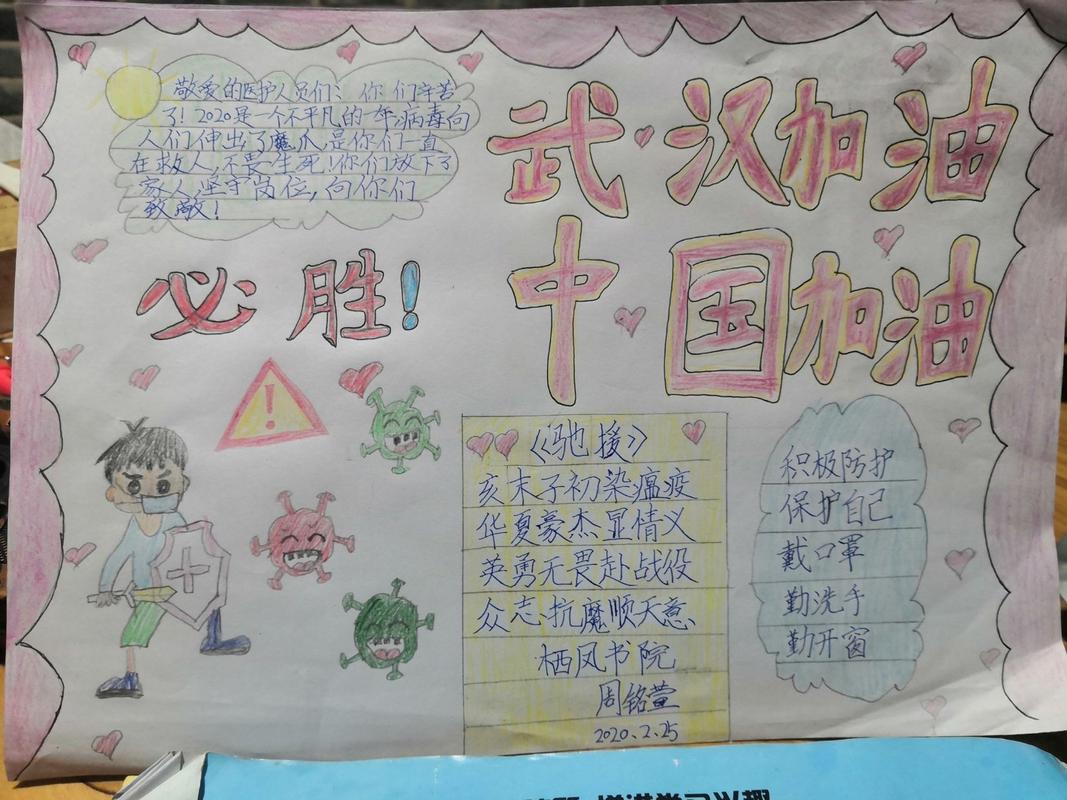 敬爱的医护人员们:你们辛苦
了!2020是一个不平凡的一年,病毒向
人们伸出了魔爪,是你们一直
在救人,不畏生死!你们放下了
家人,坚守岗位,向你们
致敬!
武汉加油
中国加油
必胜!
《驰援》
亥末子初染瘟疫
华夏豪杰显情义
英勇无畏赴战役
众志抗魔顺天意
栖凤书院
周铭萱
2020.2.25
积极防护
保护自己
戴口罩
勤洗手
勤开窗
学习兴趣